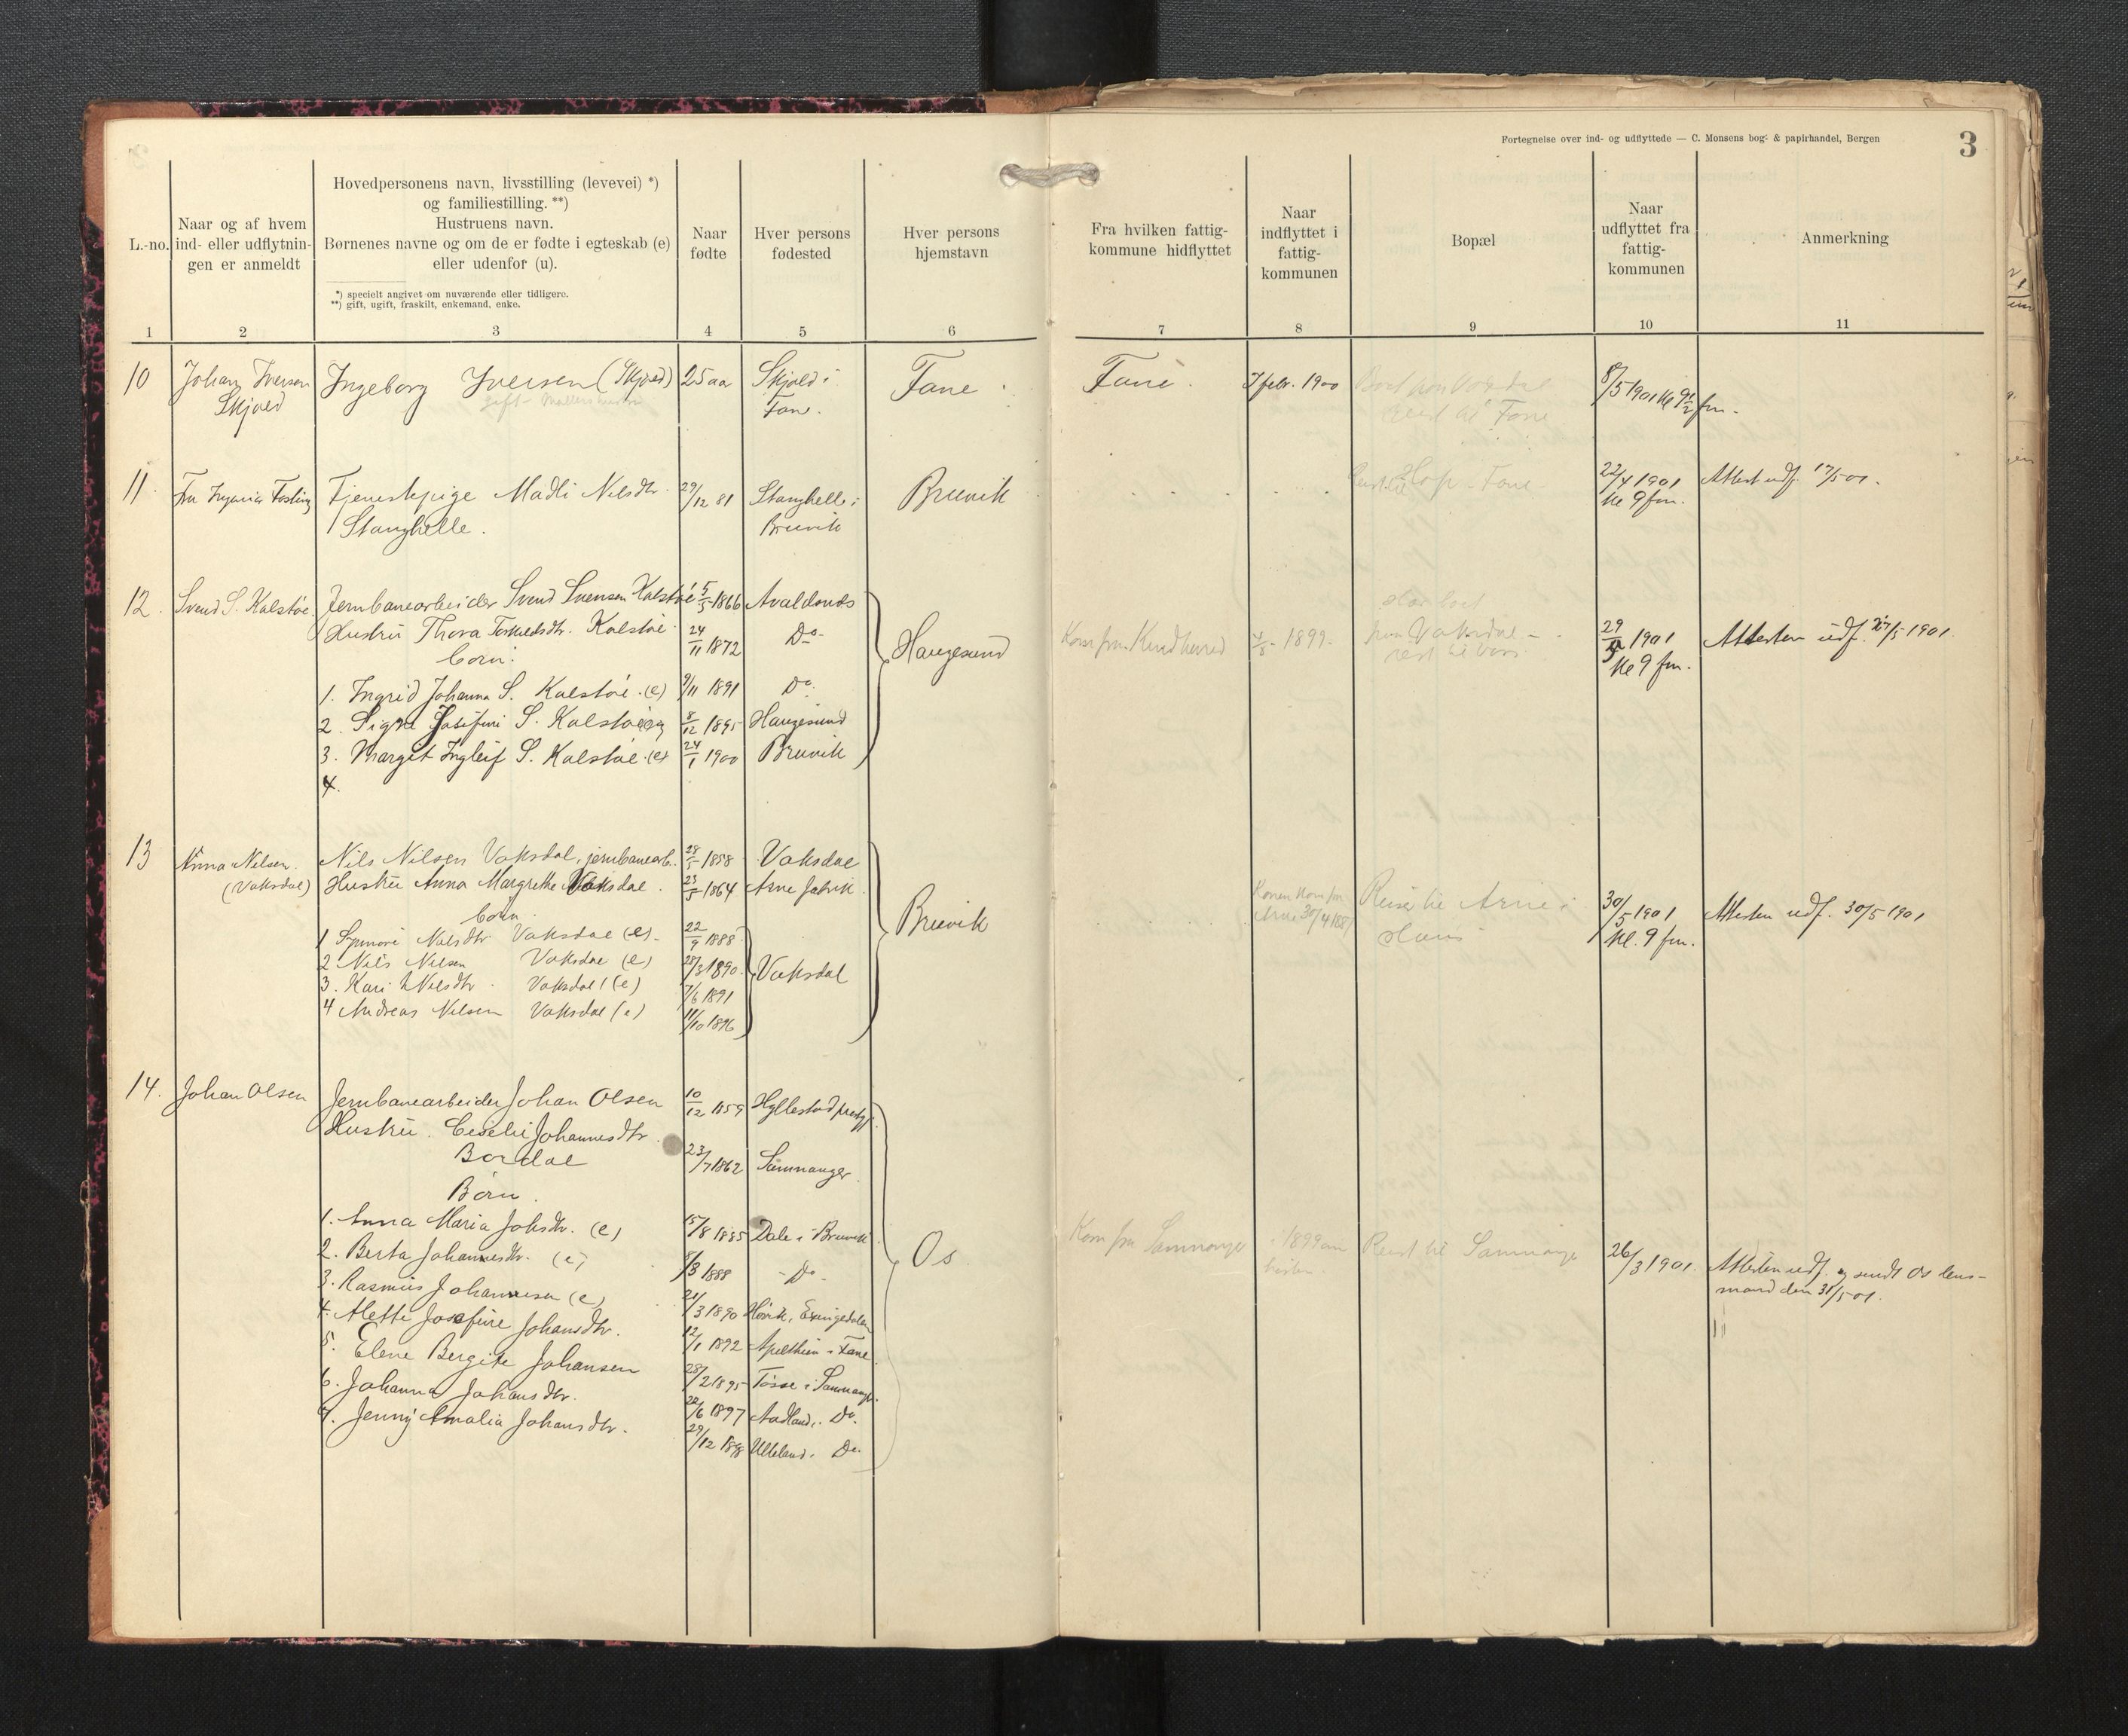 Fortegnelse over ind- og udflyttede — C. Monsens bog- & papirhandel, Bergen
3
L.-no.
Naar og af hvem
ind- eller udflytnin-
gen er anmeldt
Hovedpersonens navn, livsstilling (levevei) *)
og familiestilling. **)
Hustruens navn.
Børnenes navne og om de er fødte i egteskab (e)
eller udenfor (u).
*) specielt angivet om nuværende eller tidligere.
**) gift, ugift, fraskilt, enkemand, enke.
Naar
fødte
Hver persons
fødested
Hver persons
hjemstavn
Fra hvilken fattig-
kommune hidflyttet
Naar
indflyttet i
fattig-
kommunen
Bopæl
Naar
udflyttet fra
fattig-
kommunen
Anmerkning
1 2 3 4 5 6 7 8 9 10 11
10 Johan Iversen Ingeborg Iversen (Skjold) 25 aar Skjold i Fane Fane 7 febr. 1900 8/5 1901 kl 9 1/2 fm.
Skjold gift Fane. reist til Fane
11. Fru Tjenestepige Madli Nilsdtr. 29/12 81 Stanghelle i Bruvik Fane 22/4 1901 Attest udf. 17/5 01.
Stanghelle. Bruvik kl 9 fm.
12. Svend S. Kalstøe. Jernbanearbeider Svend Svensen Kalstøe 5/5 1866 Avaldsnes
Hustru Thora Torkildsdtr. Kalstøe 24/11 1872 Do Haugesund Kom fra Kindherred 1899. fra Vaksdal 29/5 1901 Attesten udf. 27/5 1901.
børn. reist til Voss kl 9 fm.
1. Ingrid Johanna S. Kalstøe. (e) 9/11 1891 Do
2. Signe Josefine S. Kalstøe (e) 8/12 1895 Haugesund
3. Margit Ingleif S. Kalstøe. (e) 24/1 1900 Bruvik
4.
13 Anna Nilsen Nils Nilsen Vaksdal, jernbanearb. 28/5 1858 Vaksdal
(Vaksdal) Hustru Anna Margrethe Vaksdal. 23/5 1864 Arne fabrik
børn. Bruvik Konen kom fra Reise til Arne i 30/5 1901 Attesten udf. 30/5 1901
Arne 30/4 Haus kl. 9 fm.
1 Synnøve Nilsdtr Vaksdal (e) 22/9 1888
2 Nils Nilsen Vaksdal (e) 28/3 1890 Vaksdal
3. Kari Nilsdtr. Vaksdal (e) 7/6 1891
4 Andreas Nilsen Vaksdal (e) 11/10 1896
14. Johan Olsen Jernbanearbeider Johan Olsen 10/12 1859 Hyllestad prestgj.
Hustru Johannesdtr.
Bordal 23/7 1862 Samnanger
Børn.
1. Anna Maria Johsdtr. (e) 15/8 1885 Dale i Bruvik
2. Berta Johannesdtr. (e) 8/3 1888 Do Os Kom fra Samnanger 1899 om høsten Reist til Samnanger 26/3 1901. Attesten udf. og sendt Os lens-
mand den 31/5 01.
3. Rasmus Johannesen (e) 21/3 1890 Exingedalen
4. Alette Josefine Johansdtr. 12/1 1892 Apelthun i Fane
5. Elene Bergite Johansen 28/2 1895 Tøsse i Samnanger
6. Johanna Johansdtr. 22/6 1897 Aadland i Do.
7. Jenny Amalia Johansdtr. 29/12 1898 Ulleland i Do